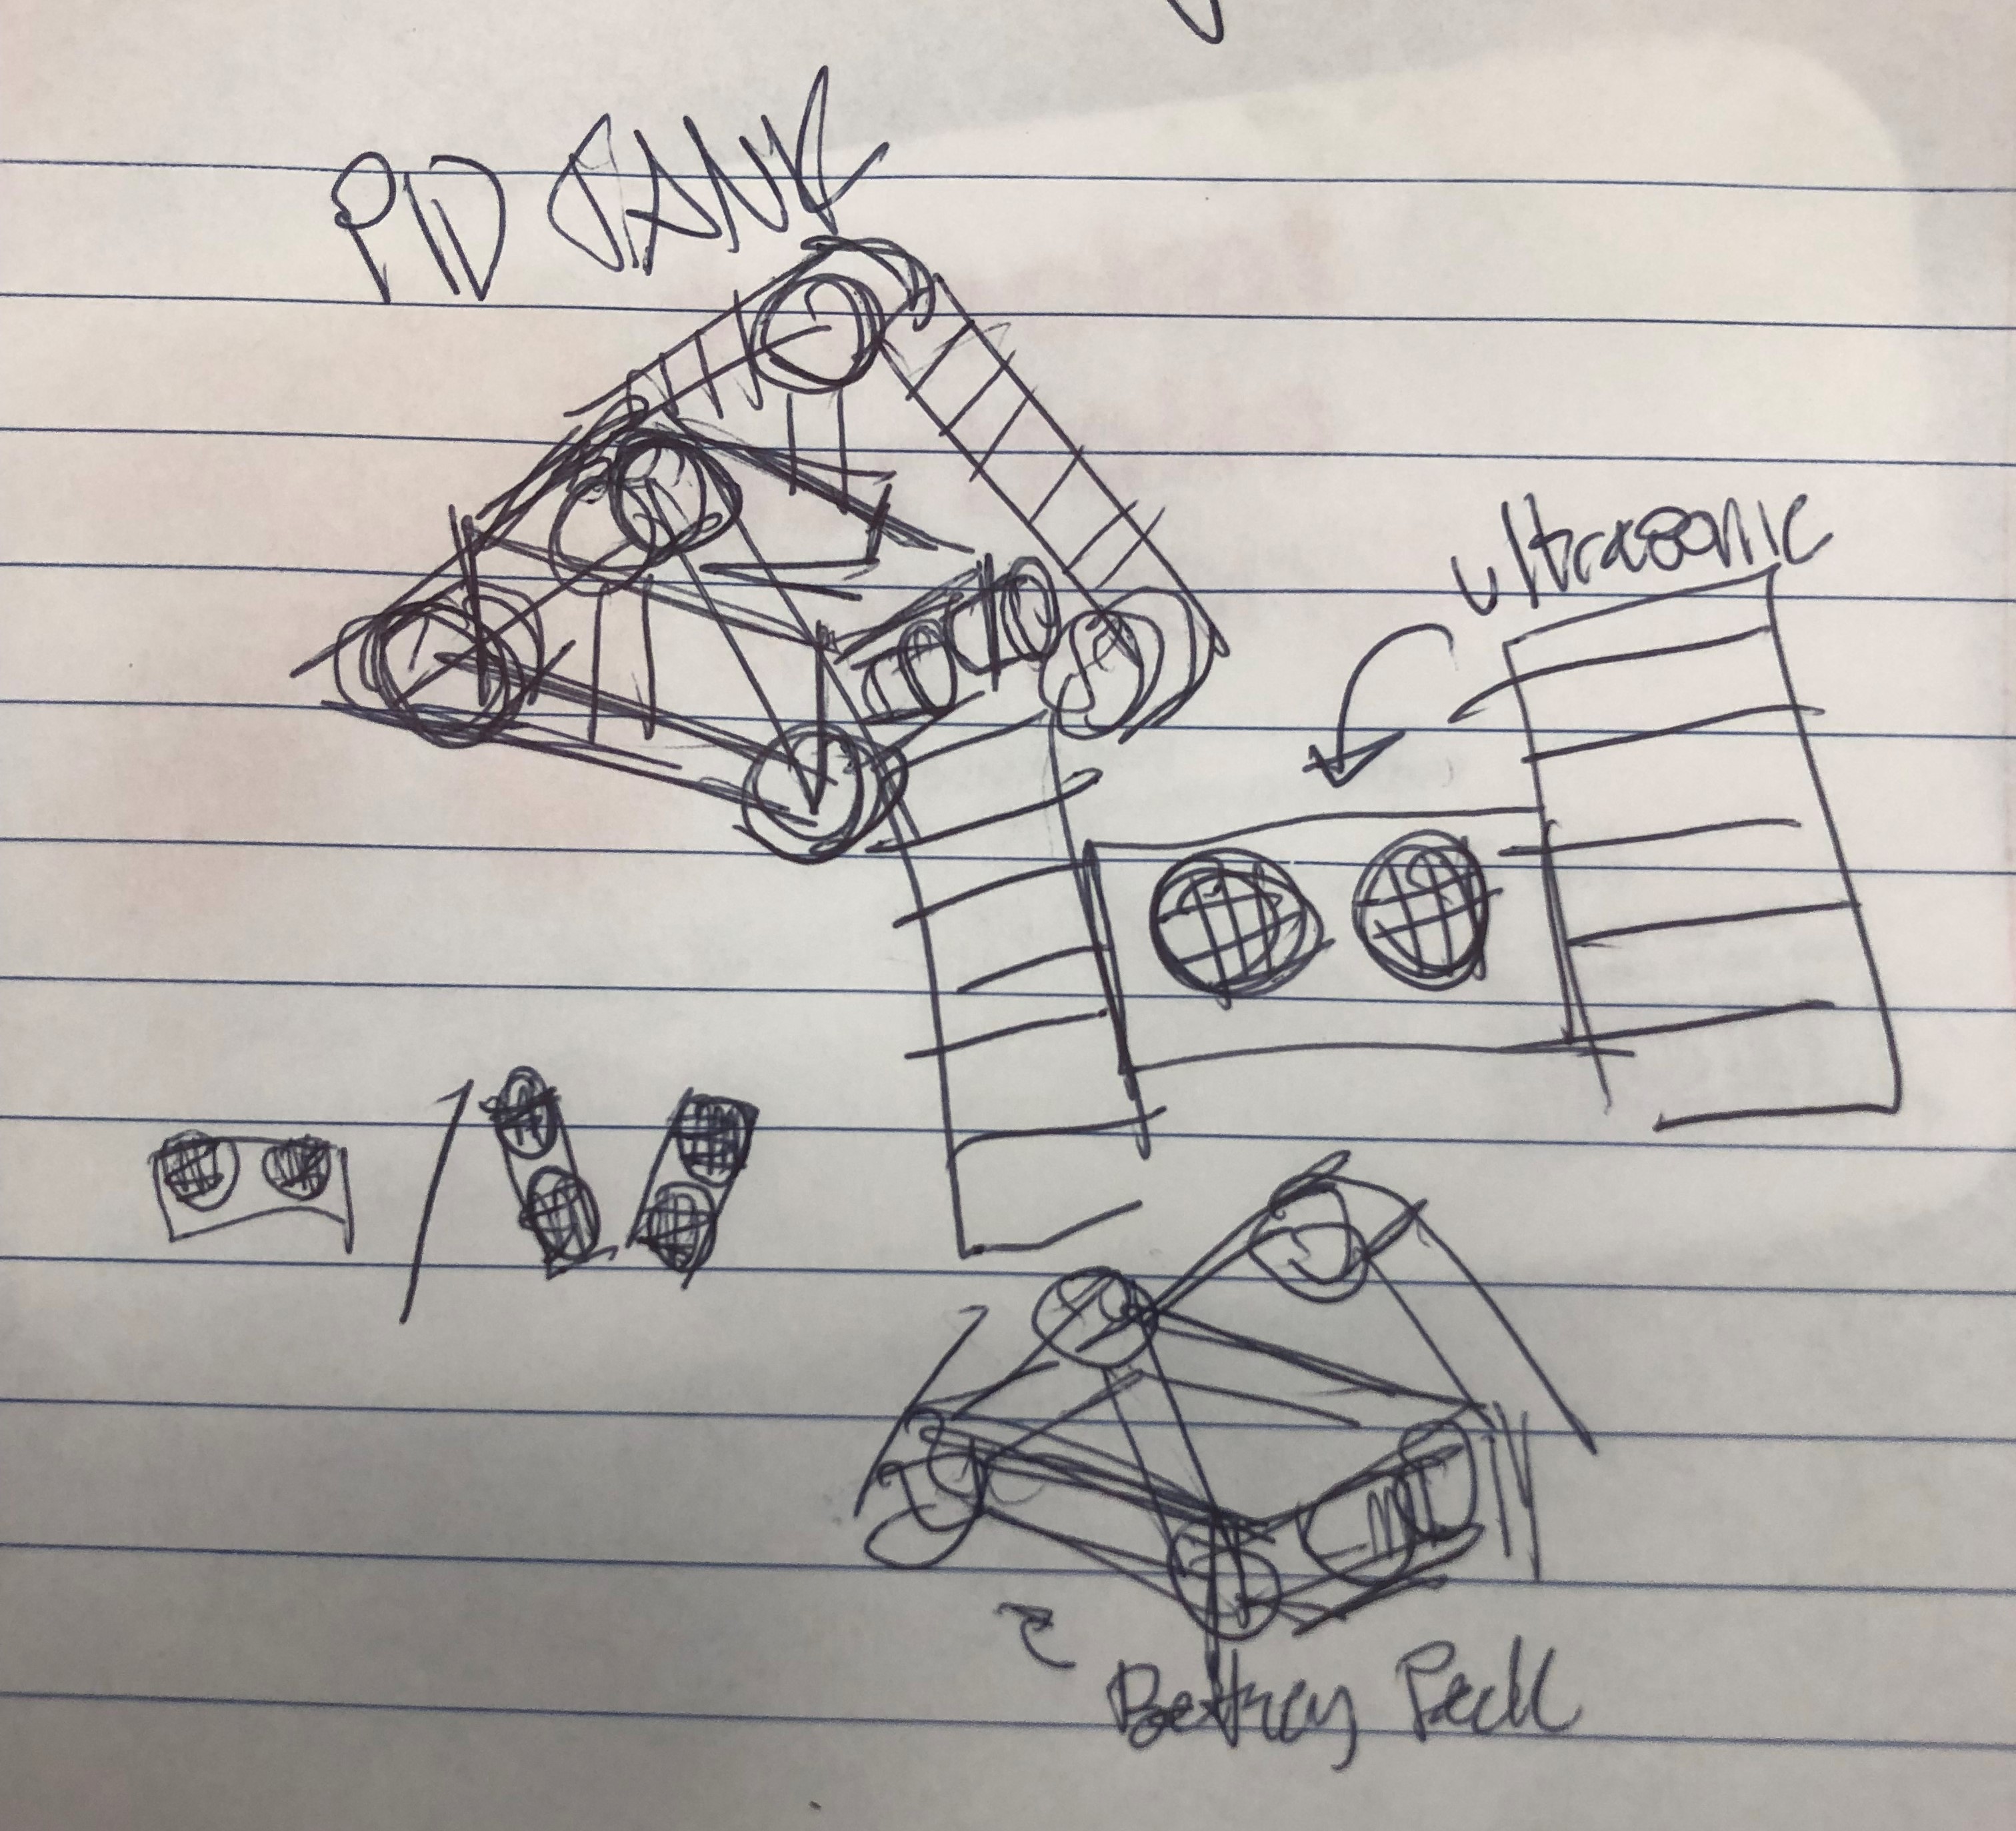 PID TANK
ultrasonic
Battery Pack